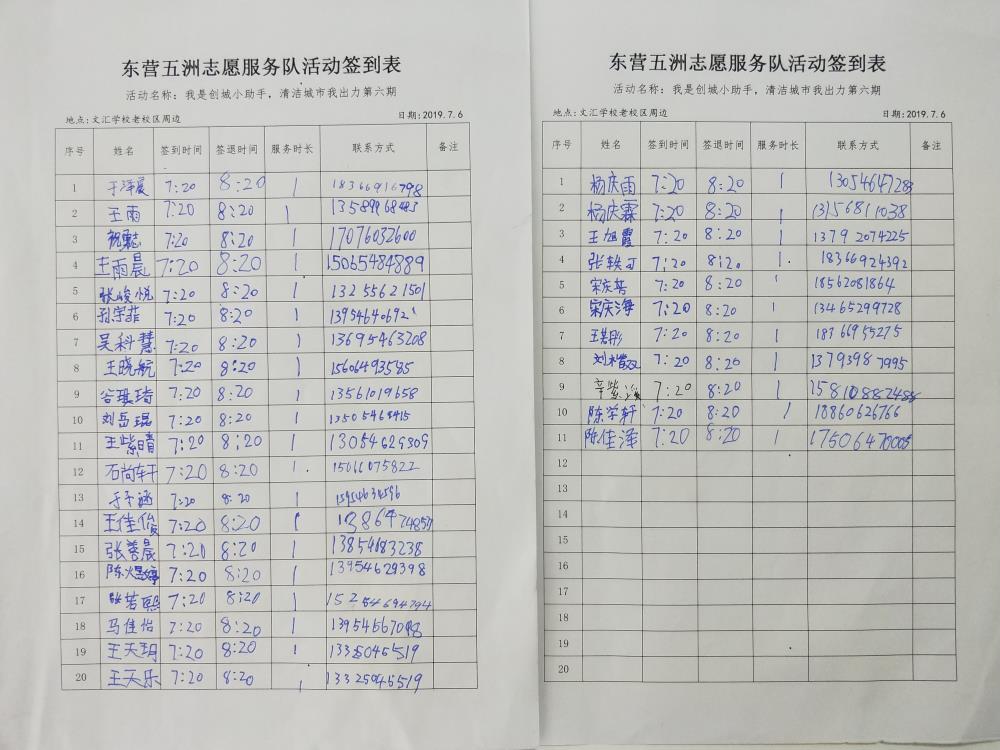 东营五洲志愿服务队活动签到表
活动名称：我是创城小助手，清洁城市我出力第六期
地点：文汇学校老校区周边 日期：2019.7.6
序号 姓名 签到时间 签退时间 服务时长 联系方式 备注
1 于泽晨 7:20 8:20 1 18366916798
2 王雨 7:20 8:20 1
3 7:20 8:20 1 17076032600
4 王雨晨 7:20 8:20 1 15065484889
5 张峻悦 7:20 8:20 1 13255621501
6 孙宗菲 7:20 8:20 1
7 吴科慧 7:20 8:20 1 13695463208
8 王晓航 7:20 8:20 1 15606493585
9 7:20 8:20 1 13561019658
10 刘岳琨 7:20 8:20 1 13505468415
11 王紫晴 7:20 8:20 1 13054629809
12 石尚轩 7:20 8:20 1 15611075822
13 于子涵 7:20 8:20 1
14 王佳俊 7:20 8:20 1
15 张善晨 7:20 8:20 1 13854683238
16 7:20 8:20 1 13954629398
17 张若熙 7:20 8:20 1
18 马佳怡 7:20 8:20 1
19 王天玥 7:20 8:20 1
20 王天乐 7:20 8:20 1
东营五洲志愿服务队活动签到表
活动名称：我是创城小助手，清洁城市我出力第六期
地点：文汇学校老校区周边 日期：2019.7.6
序号 姓名 签到时间 签退时间 服务时长 联系方式 备注
1 杨庆雨 7:20 8:20 1
2 杨庆霖 7:20 8:20 1
3 王旭霞 7:20 8:20 1 13792074225
4 7:20 8:20 1 18366924392
5 7:20 8:20 1 18562081864
6 宋庆海 7:20 8:20 1 13465299728
7 7:20 8:20 1 18366955275
8 7:20 8:20 1 13793987995
9 7:20 8:20 1
10 陈学轩 7:20 8:20 1 18860626766
11 陈佳泽 7:20 8:20 1
12
13
14
15
16
17
18
19
20